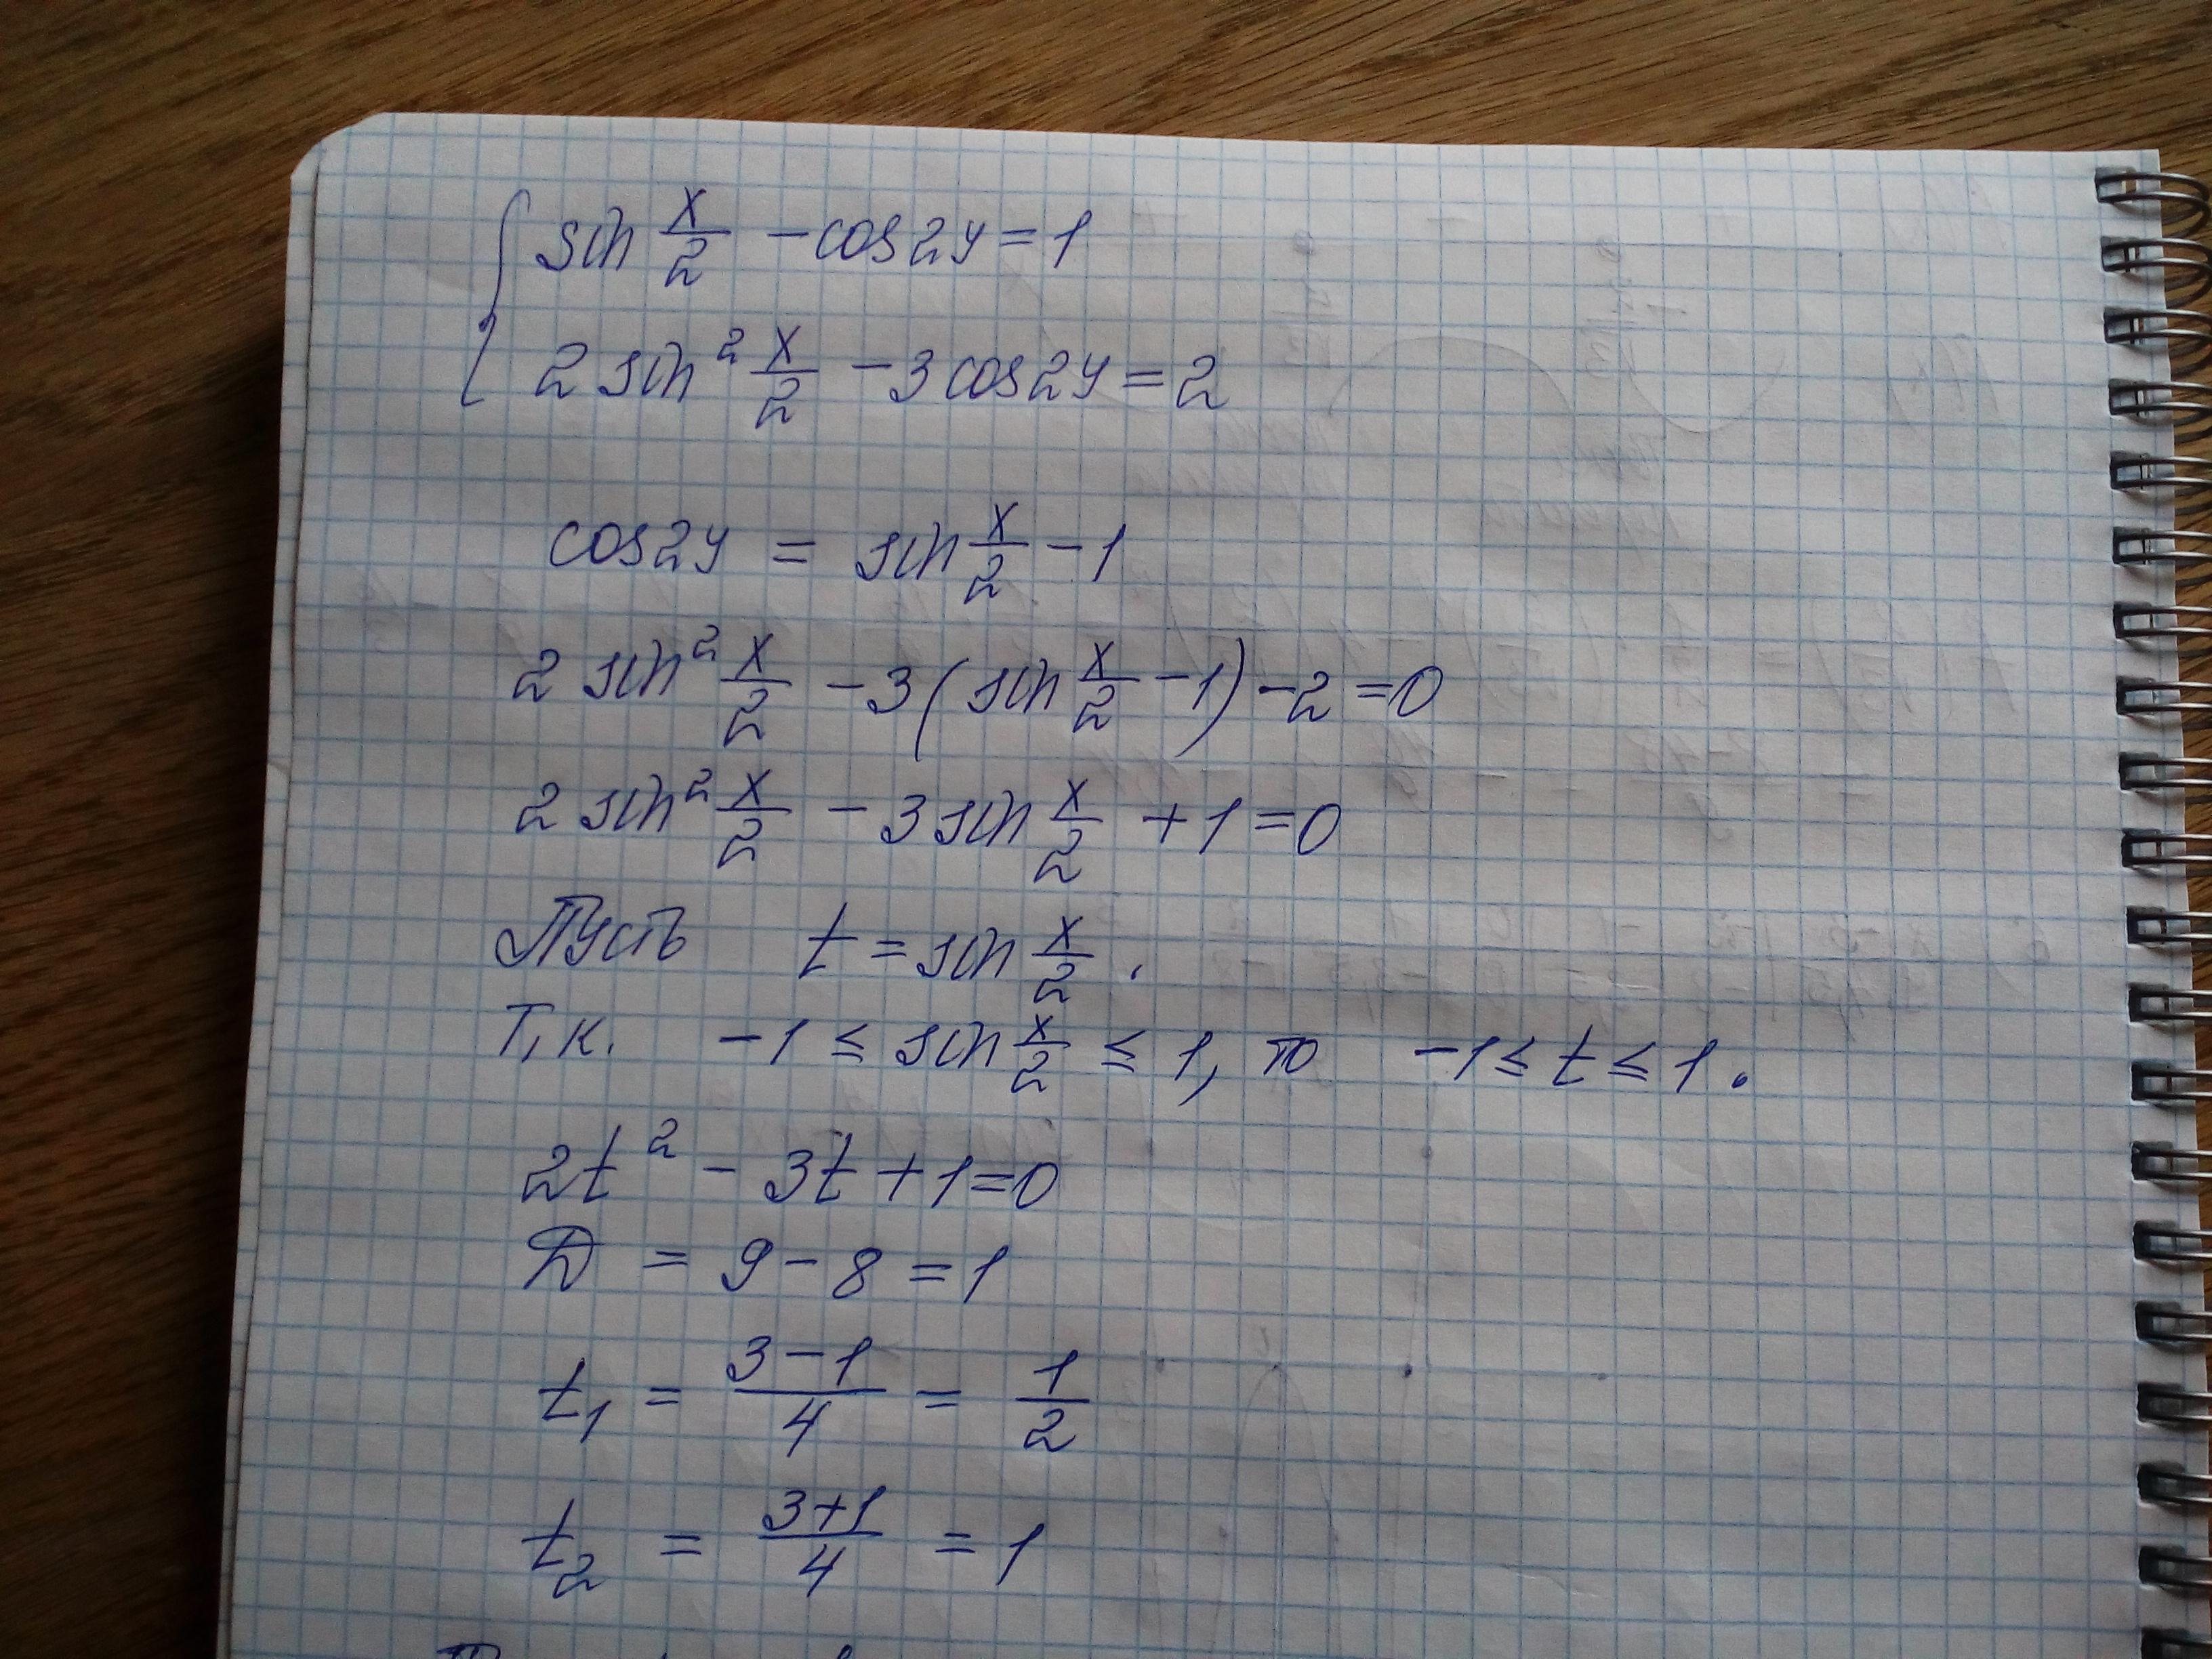 { sin x/2 - cos2y = 1
2 sin² x/2 - 3 cos2y = 2
cos2y = sin x/2 - 1
2 sin² x/2 - 3(sin x/2 - 1) - 2 = 0
2 sin² x/2 - 3 sin x/2 + 1 = 0
Пусть t = sin x/2.
Т.к. -1 ≤ sin x/2 ≤ 1, то -1 ≤ t ≤ 1.
2t² - 3t + 1 = 0
D = 9 - 8 = 1
t₁ = (3-1)/4 = 1/2
t₂ = (3+1)/4 = 1